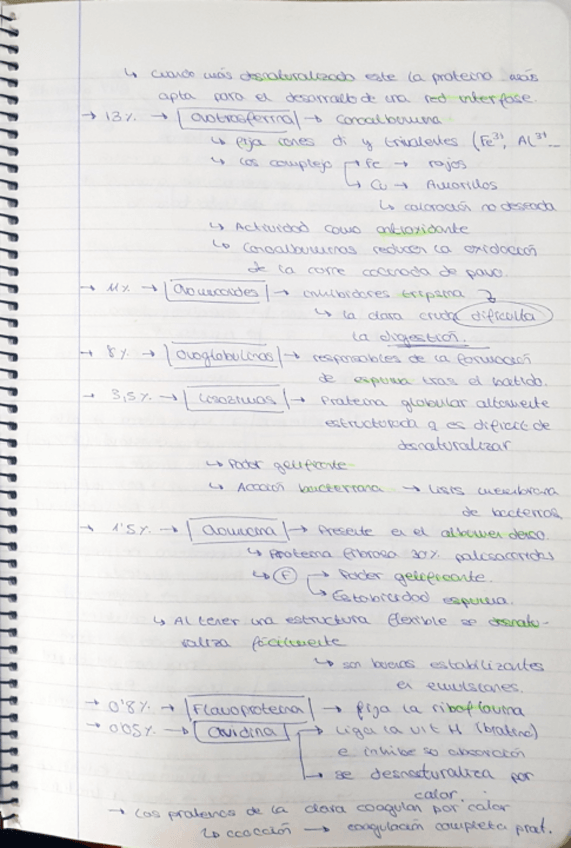 ↳ cuando más desnaturalizado este la proteína más
apta para el desarrollo de una red interfase.
→ 13% → Ovotrasferrina → Conoalbumina
↳ fija iones di y trivalentes (Fe³⁺, Al³⁺...
↳ Los complejo → Fe → rojos
↳ Cu → Amarillos
↳ coloración no deseada
↳ Actividad como antioxidante
↳ Conoalbuminas reducen la oxidación
de la carne cocinada de pavo.
→ 11% → Ovomucoides → inhibidores tripsina
↳ la clara cruda dificulta
la digestión.
→ 8% → Ovoglobulinas → responsables de la formación
de espuma tras el batido.
→ 3,5% → Lisozimas → Proteína globular altamente
estructurada q es difícil de
desnaturalizar
↳ Poder gelificante
↳ Acción bacteriana → Lisis membrana
de bacterias
→ 1'5% → Ovomucina → Presente en el albumen denso.
↳ Proteína fibrosa 30% polisacáridos
↳ F → Poder gelificante.
↳ Estabilidad espuma.
↳ Al tener una estructura flexible se desnatu-
raliza fácilmente
↳ son buenos estabilizantes
en emulsiones.
→ 0'8% → Flavoproteína → fija la riboflavina
→ 0'05% → Avidina → Liga la vit H (biotina)
e inhibe so absorción
↳ se desnaturaliza por
calor.
→ Las proteínas de la clara coagulan por calor
↳ cocción → coagulación completa prot.